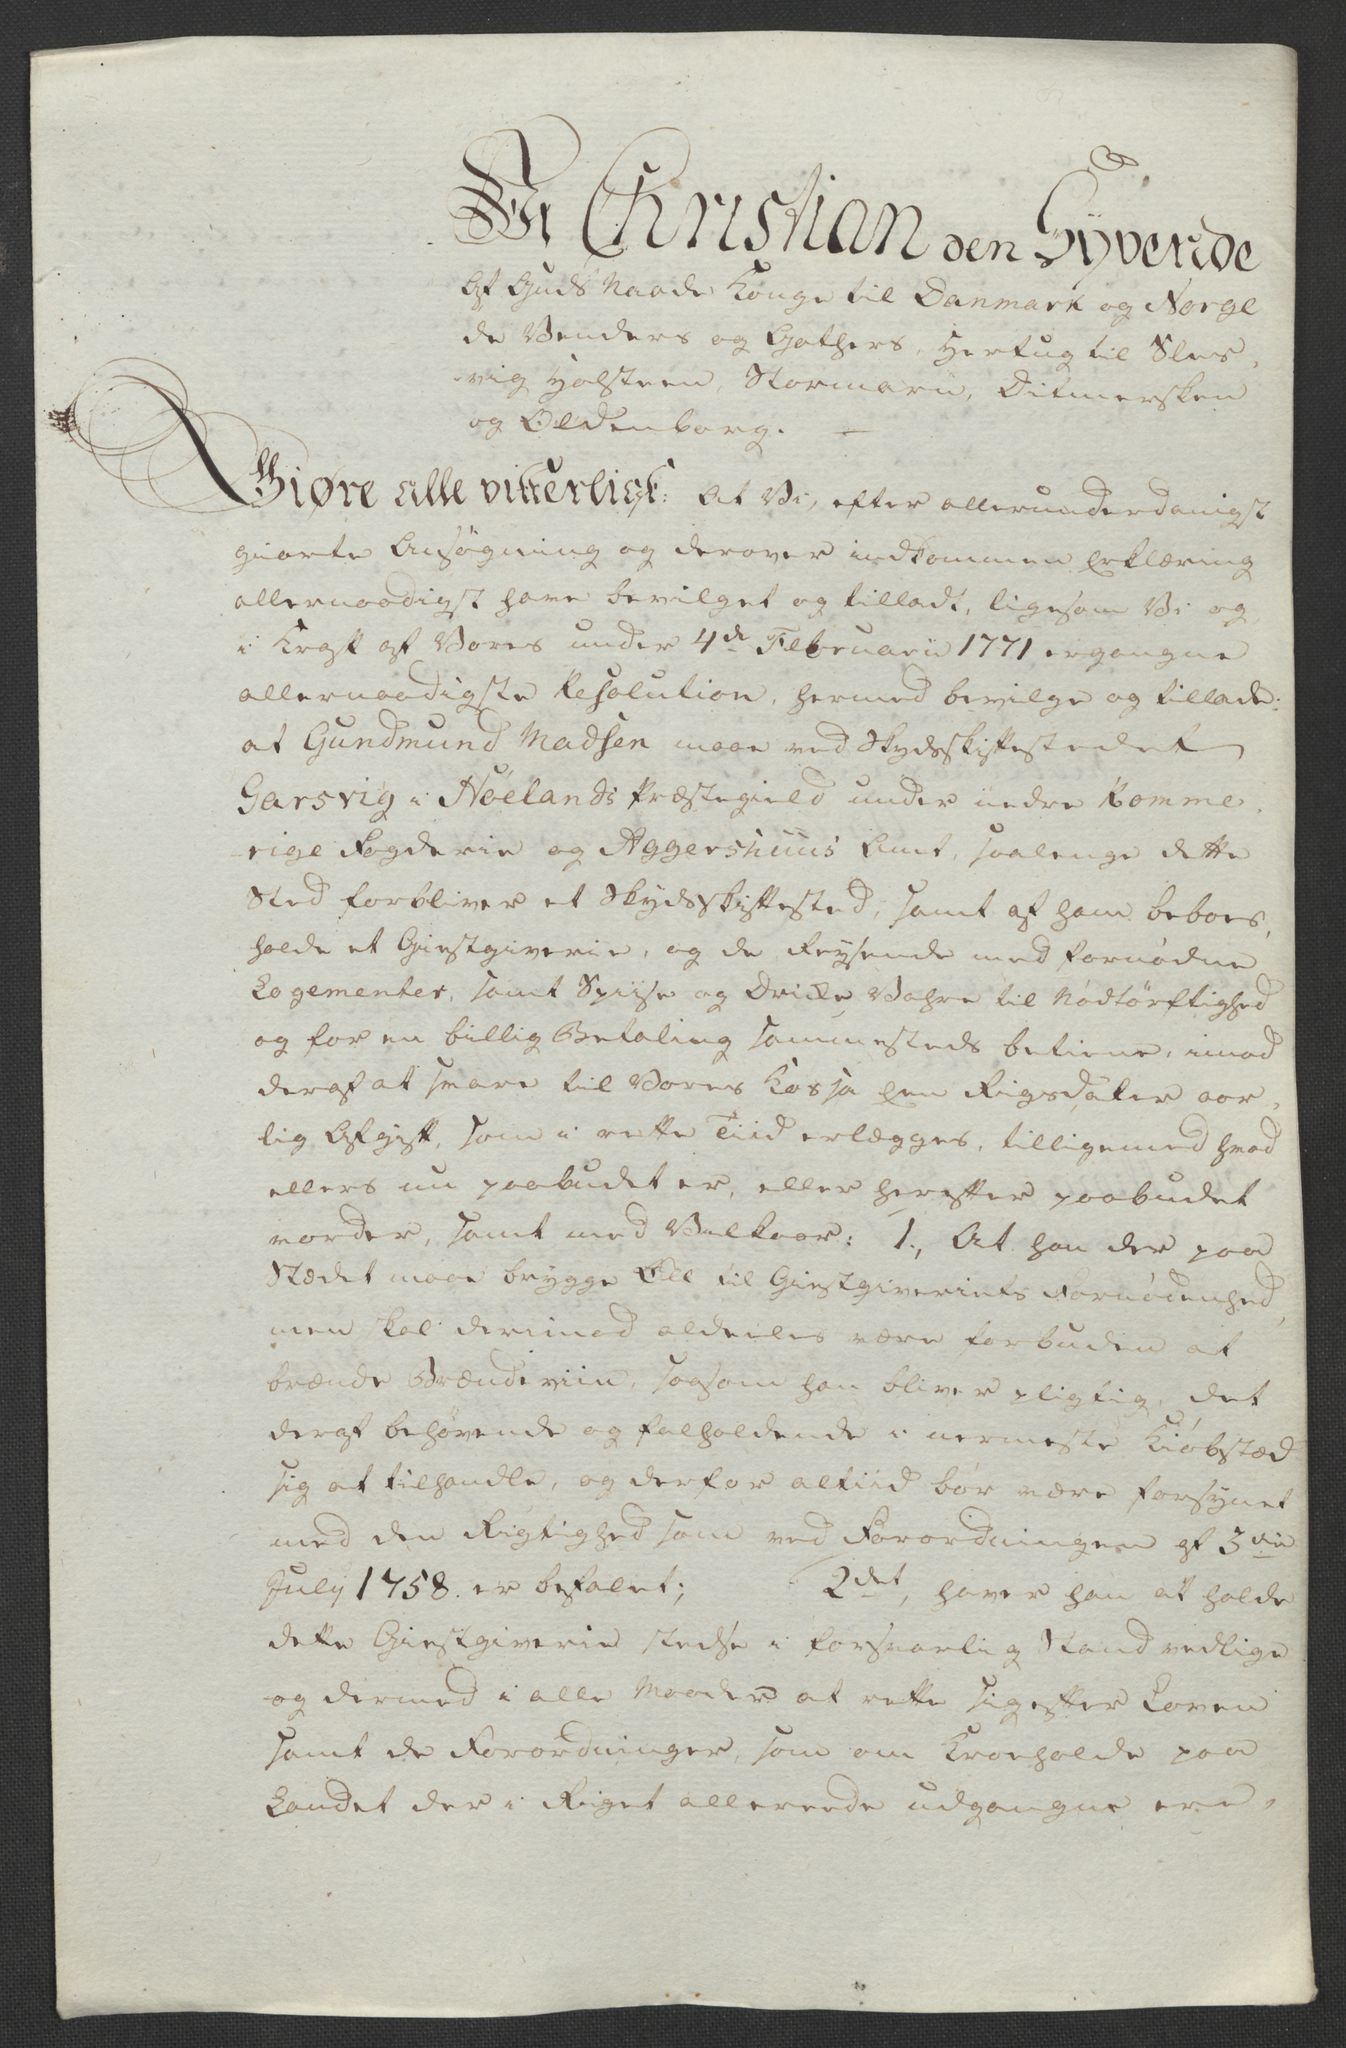 Vi Christian den Syvende
Af Guds Naade Konge til Danmark og Norge
de Venders og Gothers, Hertug til Sles,
vig Holsteen, Stormarn, Ditmersken
og Oldenborg.
Giøre alle vitterligt: At Vi, efter allerunderdanigst
giorte Ansøgning og derover indkommen Erklæring
allernaadigst have bevilget og tilladt, ligesom Vi og
i Kraft af Vores under 4de Februarii 1771 ergangne
allernaadigste Resolution, hermed bevilge og tillade:
at Gundmund Madsen maae ved Skydsskiftestedet
Garsvig i Høelands Præstegield under nedre Romme,
rige Fogderie og Aggershuus Amt, saalenge dette
Sted forbliver et Skydsskiftested, samt af ham beboes,
holde et Giestgiverie, og de Reysende med fornødne
Logementer, samt Spiise og Dricke Vahre til Nødtørftighed
og for en billig Betaling sammesteds betiene, imod
deraf at svare til Vores Kassa Een Rigsdaler aar,
lig Afgift, som i rette Tiid erlægges, tilligemed hvad
ellers nu paabudet er, eller herefter paabudet
vorder, samt med Vilkaar: 1., At han der paa
Stædet maae brygge Øll til Giestgiveriets Fornødenhed,
men skal derimod aldeeles være forbuden at
brænde Brændeviin, saasom han bliver pligtig, det
deraf behøvende og falholdende i nermeste Kiøbstæd
sig at tilhandle, og derfor altiid bør være forsynet
med den Rigtighed som ved Forordningen af 3die
July 1758. er befalet; 2det, haver han at holde
dette Giestgiverie stedse i forsvarlig Stand vedlige
og dermed i alle Maader at rette sig efter Loven
samt de Forordninger, som om Kroeholde paa
Landet der i Riget allereede udgangne ere,